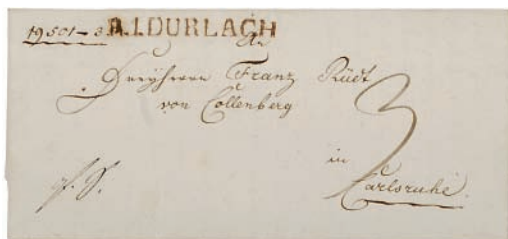 R.1.DURLACH
An
Freyherrn Franz Rüdt
von Collenberg
3
in
Carlsruhe.